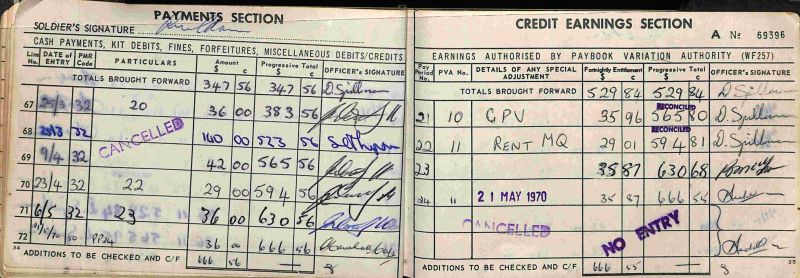 PAYMENTS SECTION
SOLDIER'S SIGNATURE
CASH PAYMENTS, KIT DEBITS, FINES, FORFEITURES, MISCELLANEOUS DEBITS/CREDITS
Line No. DATE OF ENTRY PMR Code PARTICULARS Amount $ c Progressive Total $ c OFFICER'S SIGNATURE
TOTALS BROUGHT FORWARD 347 56 347 56 D. Spillman
67 25/3 32 20 36 00 383 56
68 25/3 32 CANCELLED 140 00 523 56
69 9/4 32 42 00 565 56
70 23/4 32 22 29 00 594 56
71 6/5 32 23 36 00 630 56
72 36 00 666 56
34 ADDITIONS TO BE CHECKED AND C/F 666 56
CREDIT EARNINGS SECTION
A No 69396
EARNINGS AUTHORISED BY PAYBOOK VARIATION AUTHORITY (WF257)
Pay Period No. PVA No. DETAILS OF ANY SPECIAL ADJUSTMENT Fortnightly Entitlement $ c Progressive Total $ c OFFICER'S SIGNATURE
TOTALS BROUGHT FORWARD 529 84 529 84 D. Spillman
21 10 GPV 35 96 RECONCILED 565 80 D. Spillman
22 11 RENT MQ 29 01 RECONCILED 594 81 D. Spillman
23 35 87 630 68
24 11 21 MAY 1970 35 87 666 55
CANCELLED
NO ENTRY
ADDITIONS TO BE CHECKED AND C/F 666 55
35